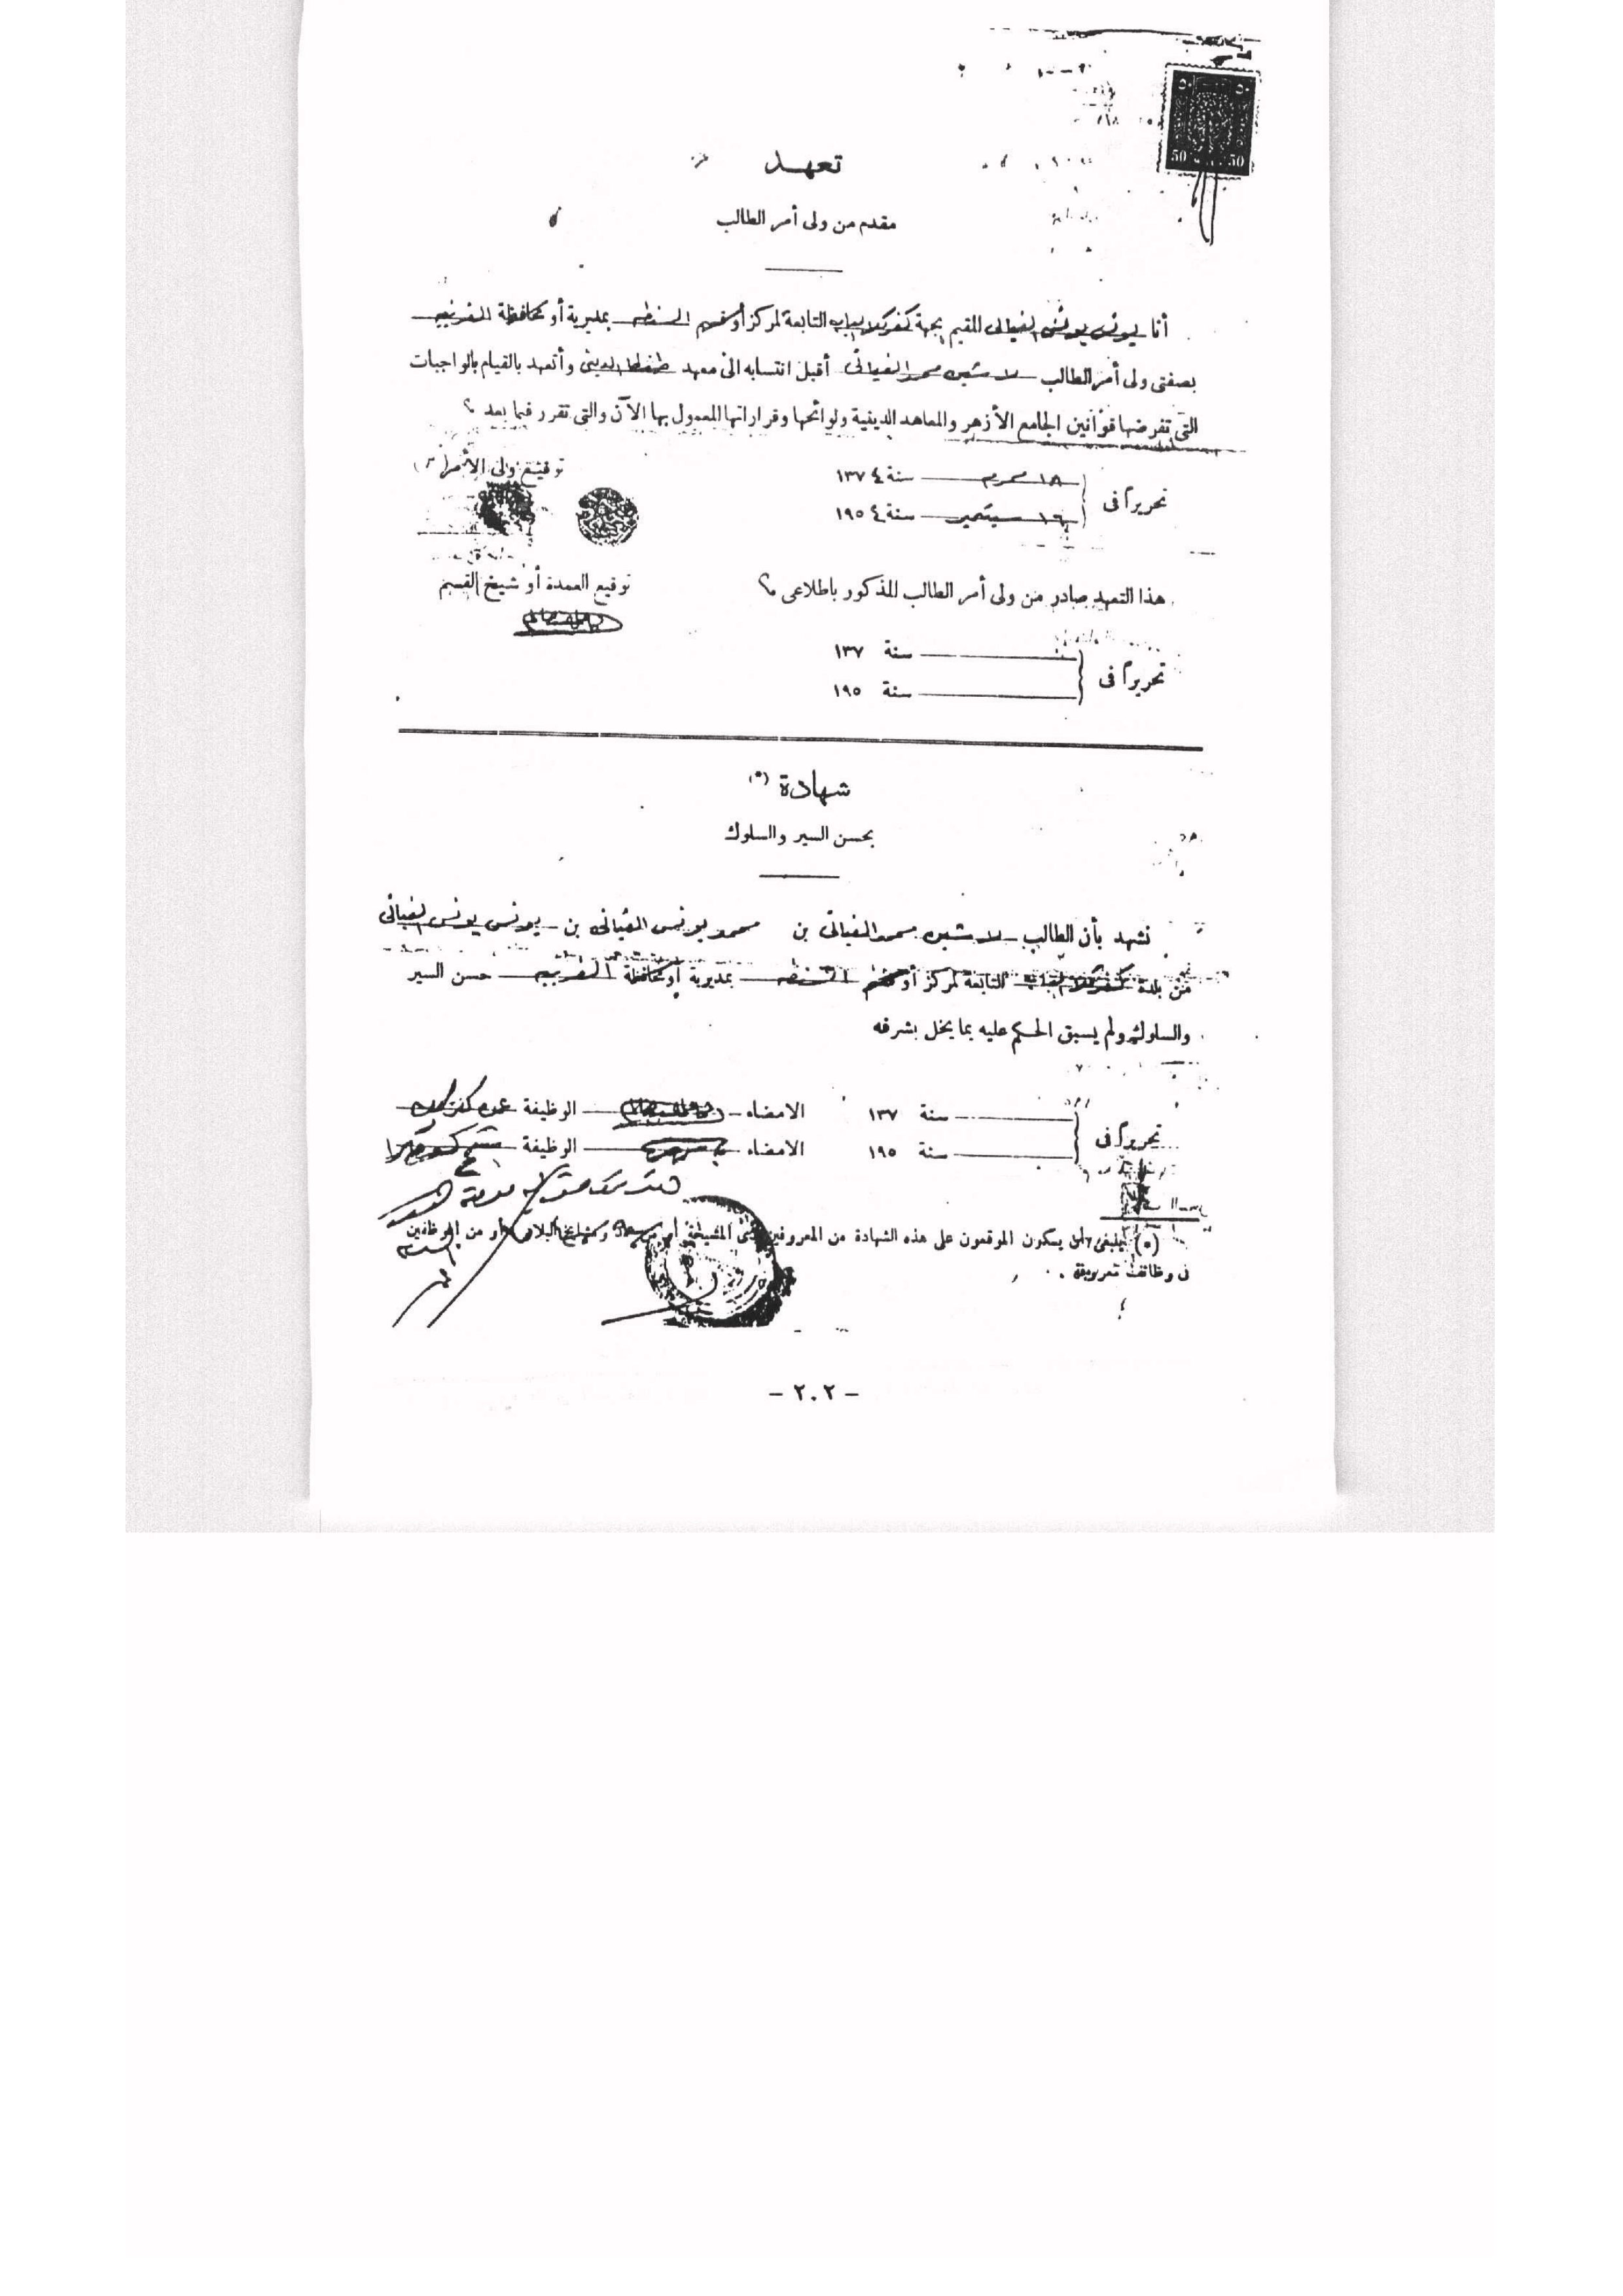 ٥٠ ٥٠
50 50
تعهد
مقدم من ولى أمر الطالب
أنا يونس يونس الغيانى المقيم بجهة كفر كلا الباب التابعة لمركز أو قسم السنطه بمديرية أو محافظة الغربيه
بصفتى ولى أمر الطالب لاشين محمد الغيانى أقبل انتسابه الى معهد طنطا الدينى وأتعهد بالقيام بالواجبات
التى تفرضها قوانين الجامع الأزهر والمعاهد الدينية ولوائحها وقراراتها المعمول بها الآن والتى تقرر فيما بعد
توقيع ولى الأمر
تحريرًا فى ١٨ محرم سنة ١٣٧٤
١٦ سبتمبر سنة ١٩٥٤
هذا التعهد صادر من ولى أمر الطالب المذكور باطلاعى
توقيع العمدة أو شيخ القسم
تحريرًا فى سنة ١٣٧
سنة ١٩٥
شهادة (*)
بحسن السير والسلوك
نشهد بأن الطالب لاشين محمد الغيانى بن محمد يونس الغيانى بن يونس يونس الغيانى
من بلدة كفر كلا الباب التابعة لمركز أو قسم السنطه بمديرية أو محافظة الغربيه حسن السير
والسلوك ولم يسبق الحكم عليه بما يخل بشرفه
تحريرًا فى سنة ١٣٧ الامضاء الوظيفة عمدة كفر كلا
سنة ١٩٥ الامضاء الوظيفة
(*) ينبغى أن يكون الموقعون على هذه الشهادة من المعروفين لدى المشيخة أو من ومشايخ البلاد أو من الموظفين
فى وظائف
- ٢٠٢ -